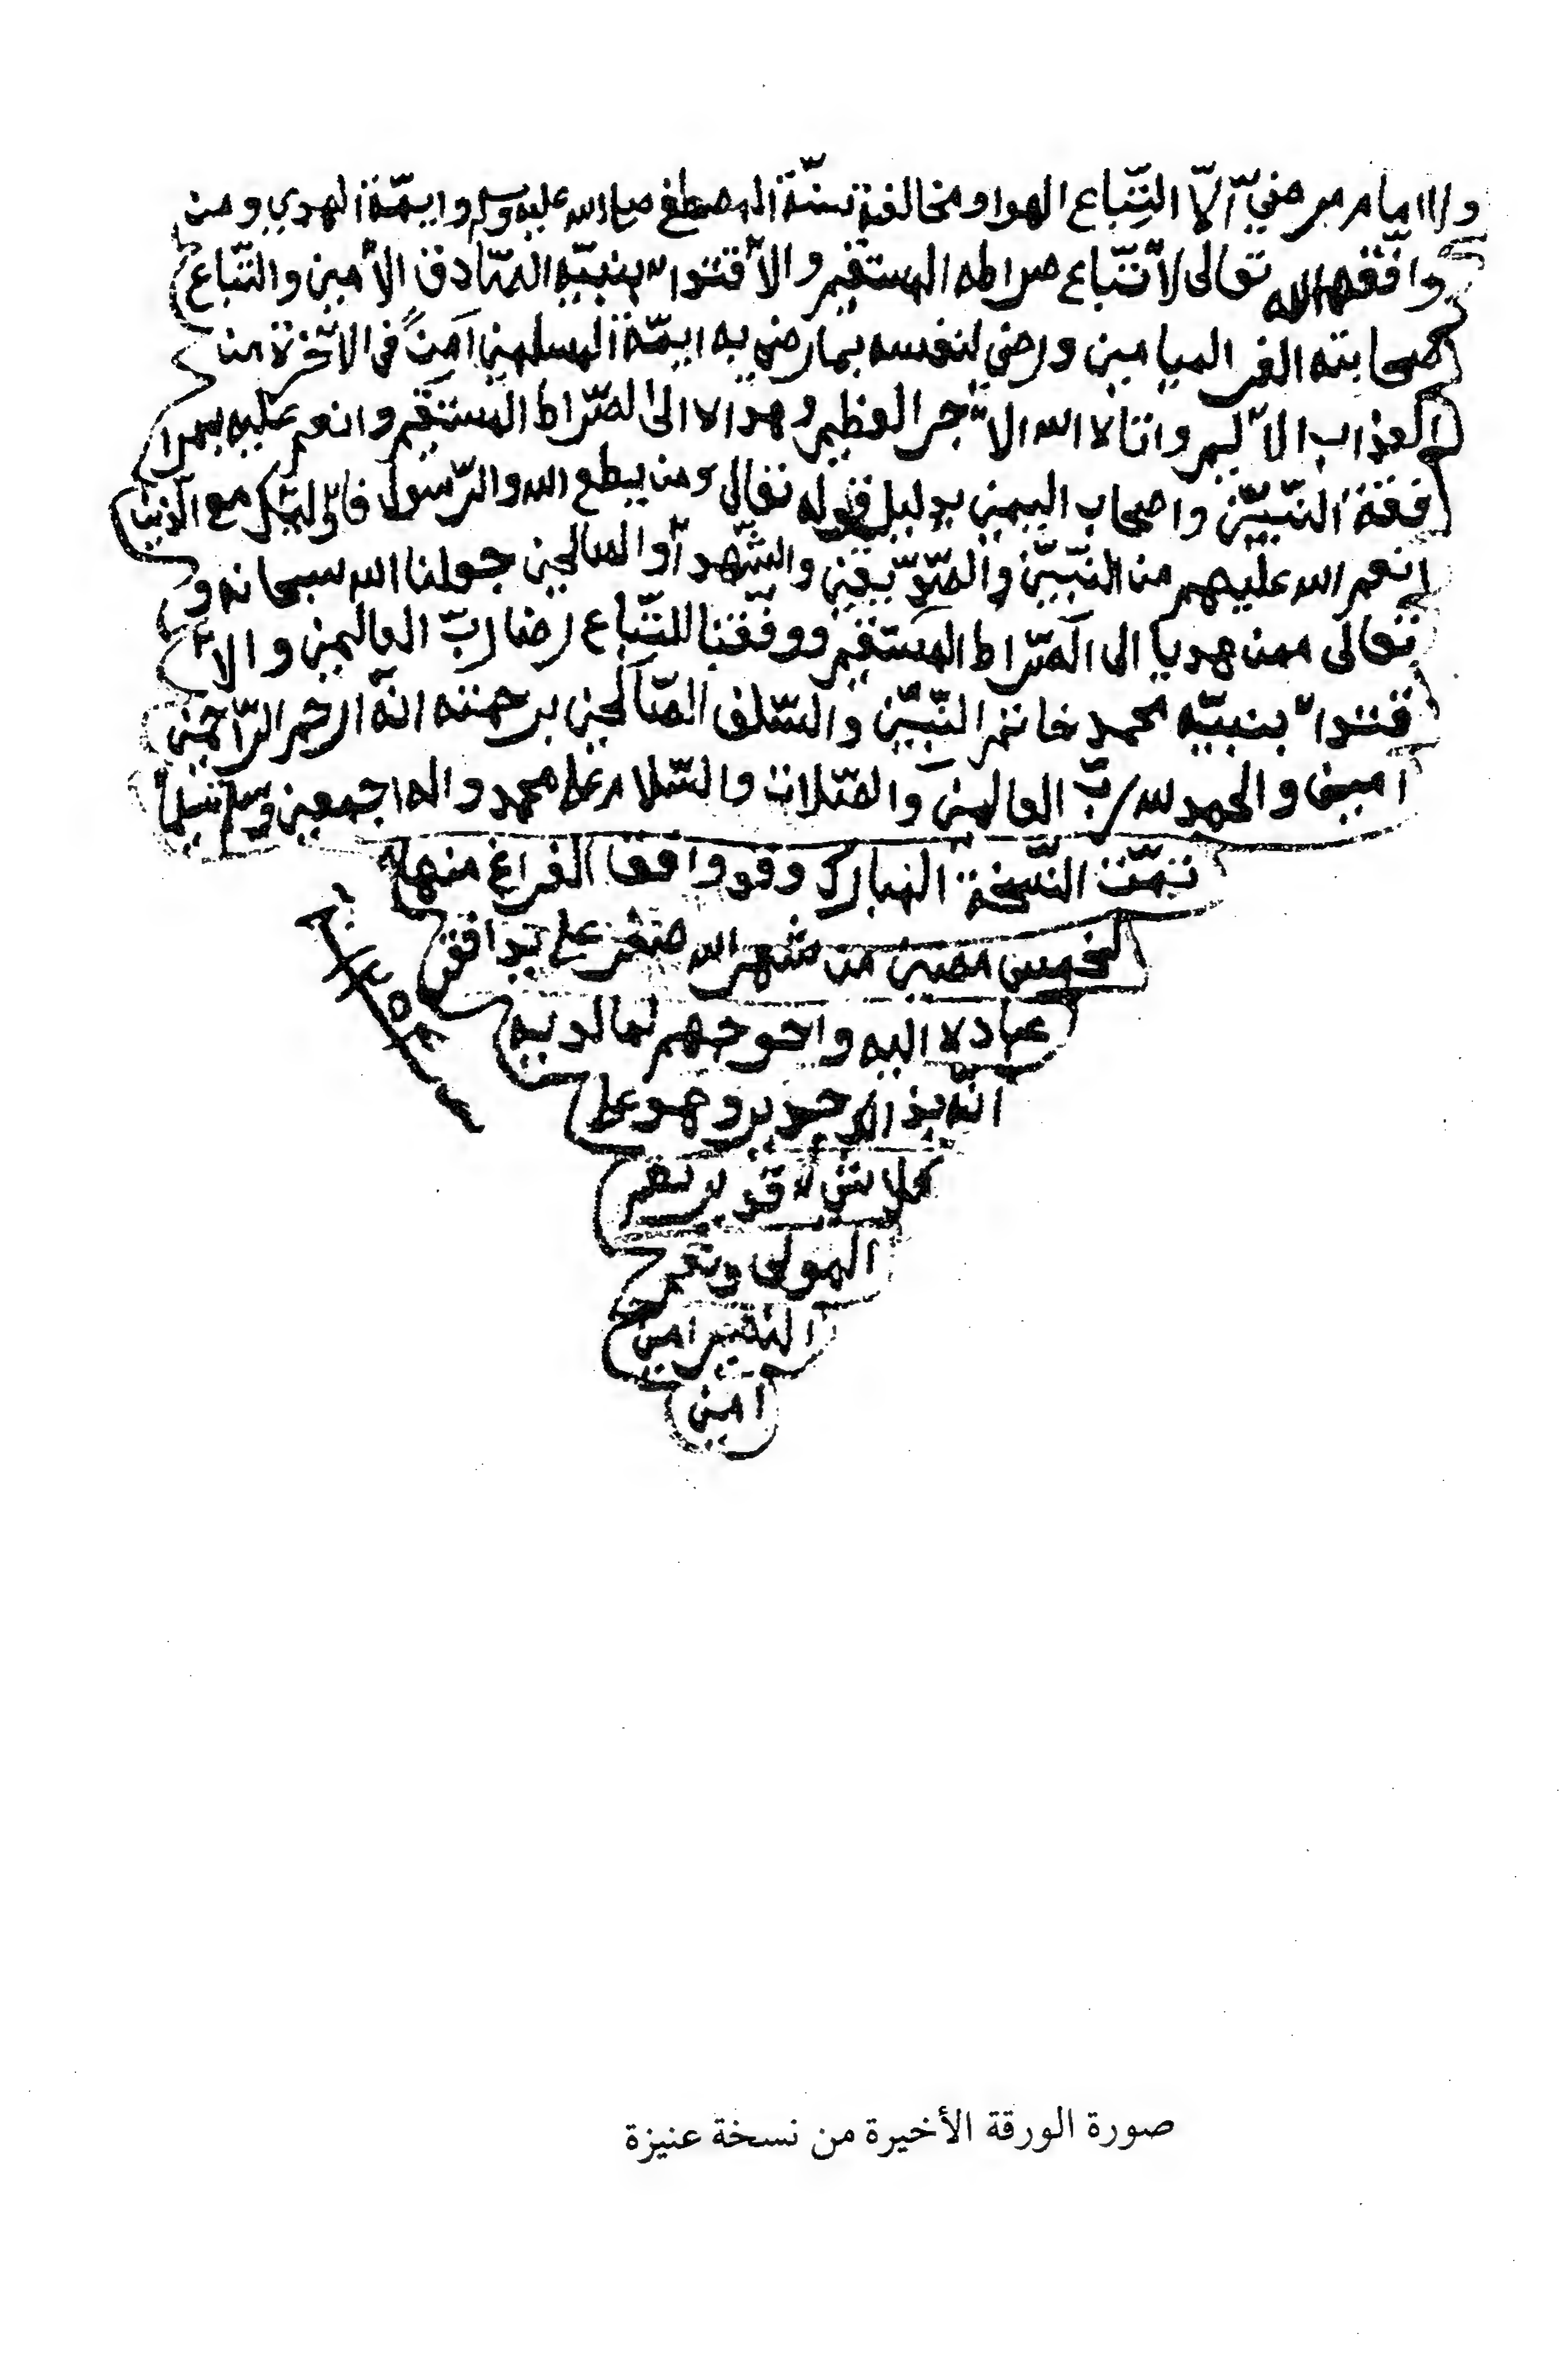 ولا امام مرضيّ الّا التّباع الهوا ومخالفة سنّة المصطفى صلى الله عليه وسلم وايمّة الهدي ومن
وافّقه الله تعالى لاتّباع صراطه المستقيم والاقتدوا بنبيّه الصّادق الامين والتّباع
صحابته الغر الميامين ورضي لنفسه بما رضي به ايمّة المسلمين آمن في الاخرة من
العذاب الاليم واتاه الله الاجر العظيم وهداه الى الصّراط المستقيم وانعم عليه بمرا
فقة النّبيّن واصحاب اليمين بدليل قوله تعالى ومن يطع الله والرّسول فاوليك مع الذين
انعم الله عليهم من النّبيّن والصّدّيقين والشّهدآ والصالحين جعلنا الله سبحانه و
تعالى ممن هديا الى الصّراط المستقيم ووفّقنا للتّباع رضا ربّ العالمين والا
قتدوا بنبيّه محمد خاتم النّبيّن والسّلف الصّالحين برحمته انّه ارحم الرّاحمين
امين والحمد لله ربّ العالمين والصّلات والسّلام على محمد واله اجمعين وسلم تسليما
تمّت النّسخة المبارك وقد وافقا الفراغ منها
لخمس مضين من شهر الله صفر على يد افقر
عباده اليه واحوجهم لما لديه
انّه بذالك جدير وهو على
كل شيء قدير نعم
المولى ونعم
النصير امين
امين
١٢٥٨
صورة الورقة الأخيرة من نسخة عنيزة